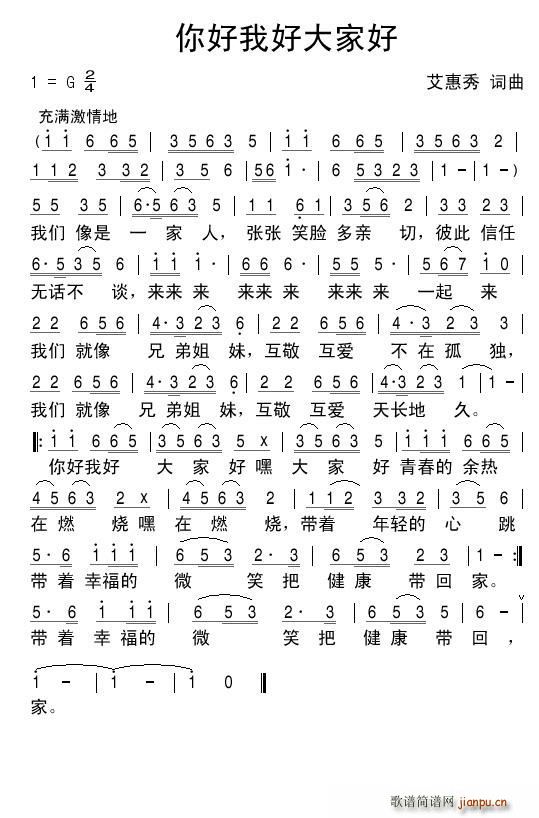 你好我好大家好
1 = G 2/4 艾惠秀 词曲
充满激情地
( 1 1 6 6 5 | 3 5 6 3 5 | 1 1 6 6 5 | 3 5 6 3 2 |
1 1 2 3 3 2 | 3 5 6 | 5 6 1 · 6 5 3 2 3 | 1 - | 1 - )
5 5 3 5 | 6 · 5 6 3 5 | 2 1 1 6 1 | 3 5 6 2 | 3 3 2 3 |
我们 像是 一 家 人，张张 笑脸 多亲 切，彼此 信任
6 · 5 3 5 | 1 1 1 · | 6 6 6 · | 5 5 5 · | 5 6 7 1 0 |
无话不 谈，来来 来 来来 来 来来 来 一起 来
2 2 6 5 6 | 4 · 3 2 3 6 | 2 2 6 5 6 | 4 · 3 2 3 3 |
我们 就像 兄 弟姐 妹，互敬 互爱 不 在 孤 独，
2 2 6 5 6 | 4 · 3 2 3 6 | 2 2 6 5 6 | 4 · 3 2 3 1 | 1 - |
我们 就像 兄 弟姐 妹，互敬 互爱 天长地 久。
‖: 1 1 6 6 5 | 3 5 6 3 5 X | 3 5 6 3 5 | 1 1 1 6 6 5 |
你好我好 大 家 好 嘿 大 家 好 青春的 余热
4 5 6 3 | 2 X | 4 5 6 3 2 | 1 1 2 3 2 | 5 6 5 3 |
在 燃 烧 嘿 在 燃 烧，带着 年轻的 心 跳
5 · 6 1 1 1 | 6 5 3 2 · 3 | 6 5 3 5 2 3 | 1 - :‖
带 着 幸福的 微 笑 把 健 康 带 回 家。
5 · 6 1 1 1 | 6 5 3 | 2 · 3 | 6 6 5 3 5 | 2 - |
带 着 幸 福的 微 笑 把 健 康 带 回 ，
1 - | 1 - | 1 1 0 ‖
家。
歌谱简谱网
jianpu.cn